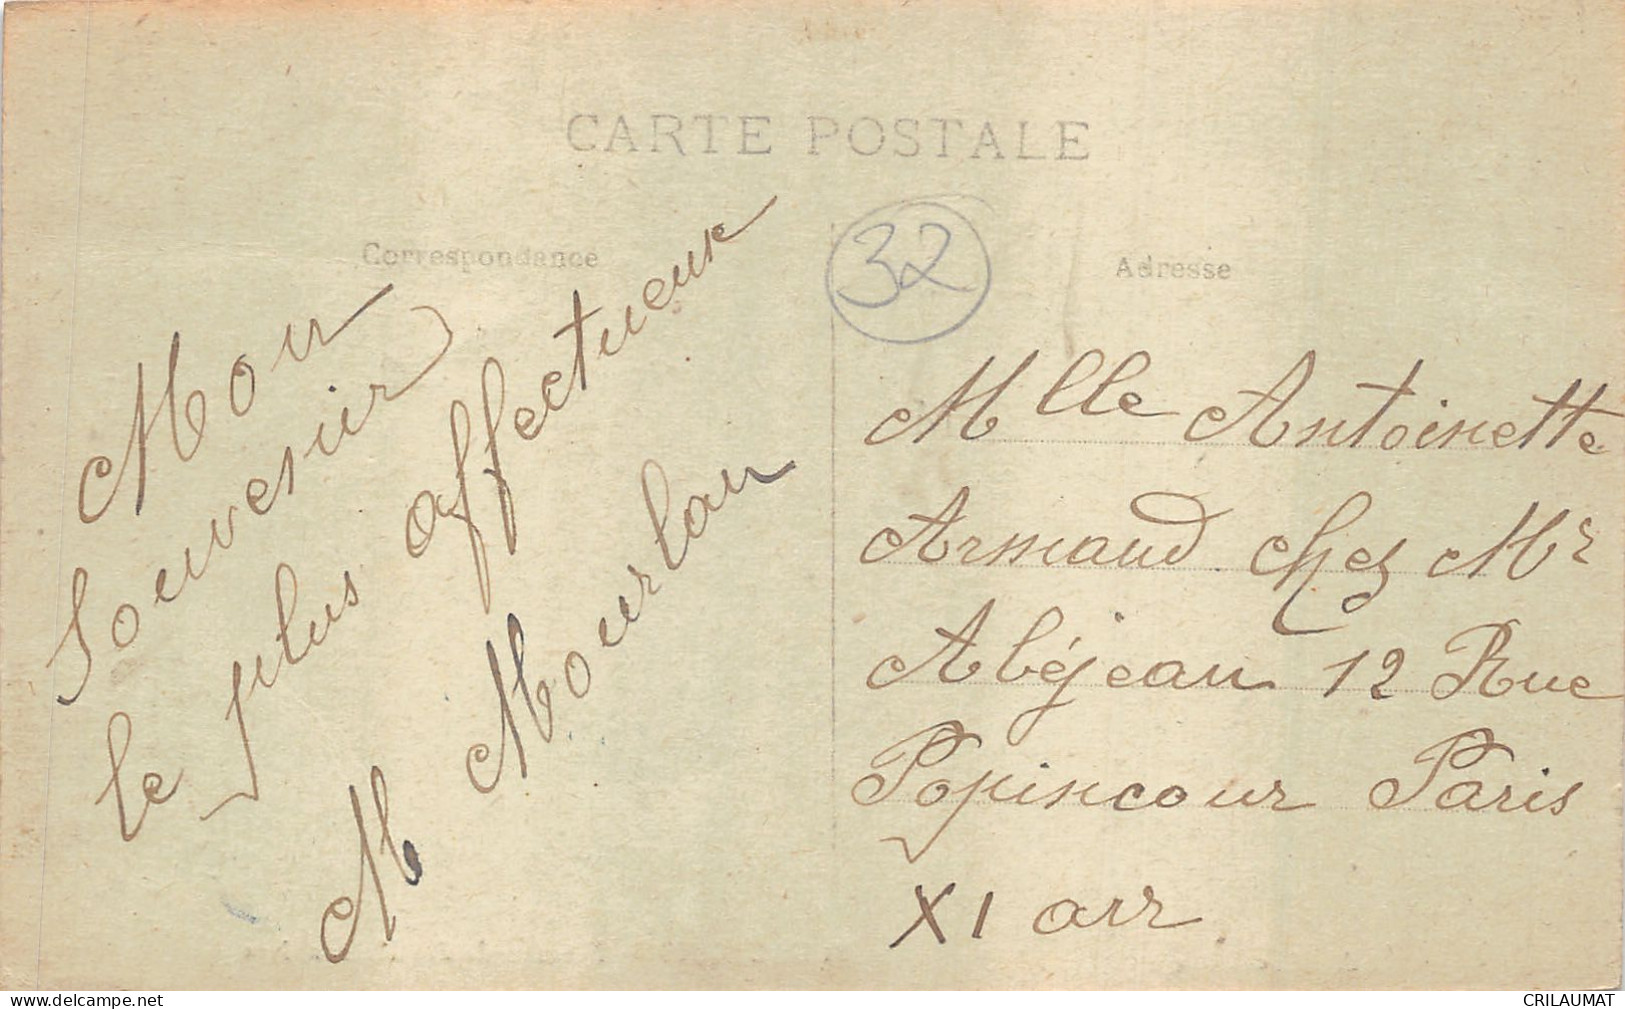 CARTE POSTALE
Correspondance
Adresse
32
Mon
Souvenir
le plus affectueux
M Mourlan
Mlle Antoinette
Armaud chez Mr
Abéjean 12 Rue
Popincour Paris
XI arr
www.delcampe.net
CRILAUMAT